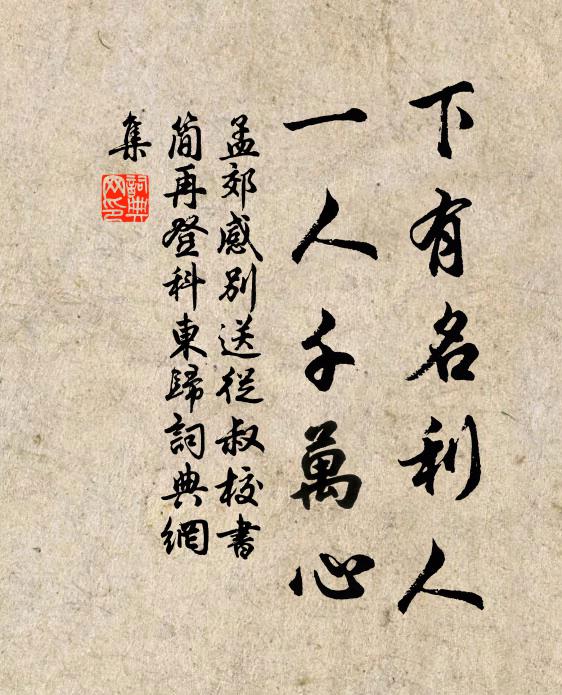 下有名利人
一人千萬心
孟郊感别送從叔校書
简再登科東歸詞典網
集
詞典
网印